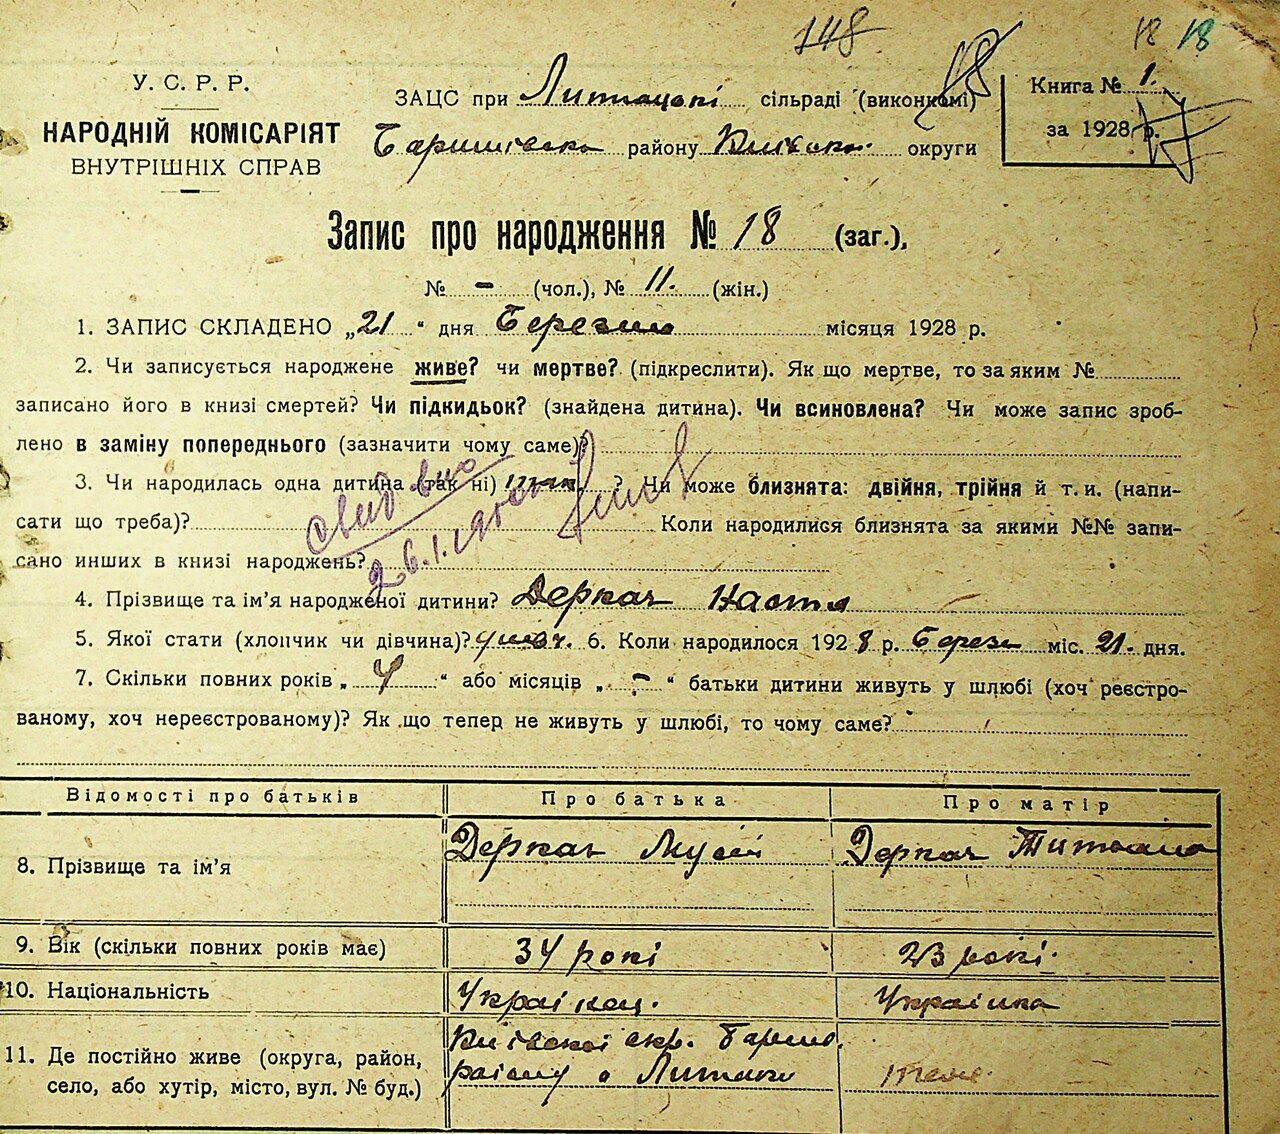 148 18 18
У. С. Р. Р.
НАРОДНІЙ КОМІСАРІЯТ
ВНУТРІШНІХ СПРАВ
ЗАЦС при сільраді (виконкомі)
Баришівськ району Київськ. округи
Книга № 1.
за 1928 р.
Запис про народження № 18 (заг.),
№ - (чол.), № 11. (жін.)
1. ЗАПИС СКЛАДЕНО „21“ дня Березня місяця 1928 р.
2. Чи записується народжене живе? чи мертве? (підкреслити). Як що мертве, то за яким №
записано його в книзі смертей? Чи підкидьок? (знайдена дитина). Чи всиновлена? Чи може запис зроб-
лено в заміну попереднього (зазначити чому саме)?
3. Чи народилась одна дитина (так ні) так ? Чи може близнята: двійня, трійня й т. и. (напи-
сати що треба)? Коли народилися близнята за якими №№ запи-
сано инших в книзі народжень?
4. Прізвище та ім’я народженої дитини? Деркач Настя
5. Якої стати (хлопчик чи дівчина)? 6. Коли народилося 1928 р. Березн міс. 21. дня.
7. Скільки повних років „ 4 “ або місяців „ - “ батьки дитини живуть у шлюбі (хоч реєстро-
ваному, хоч нереєстрованому)? Як що тепер не живуть у шлюбі, то чому саме?
Відомості про батьків Про батька Про матір
8. Прізвище та ім’я Деркач Мусій Деркач Титяна
9. Вік (скільки повних років має) 34 рокі 23 рокі.
10. Національність Украінец. Украінка
11. Де постійно живе (округа, район, Киівскоі окр. Бариш.
село, або хутір, місто, вул. № буд.) раіону с Литвтки теж.